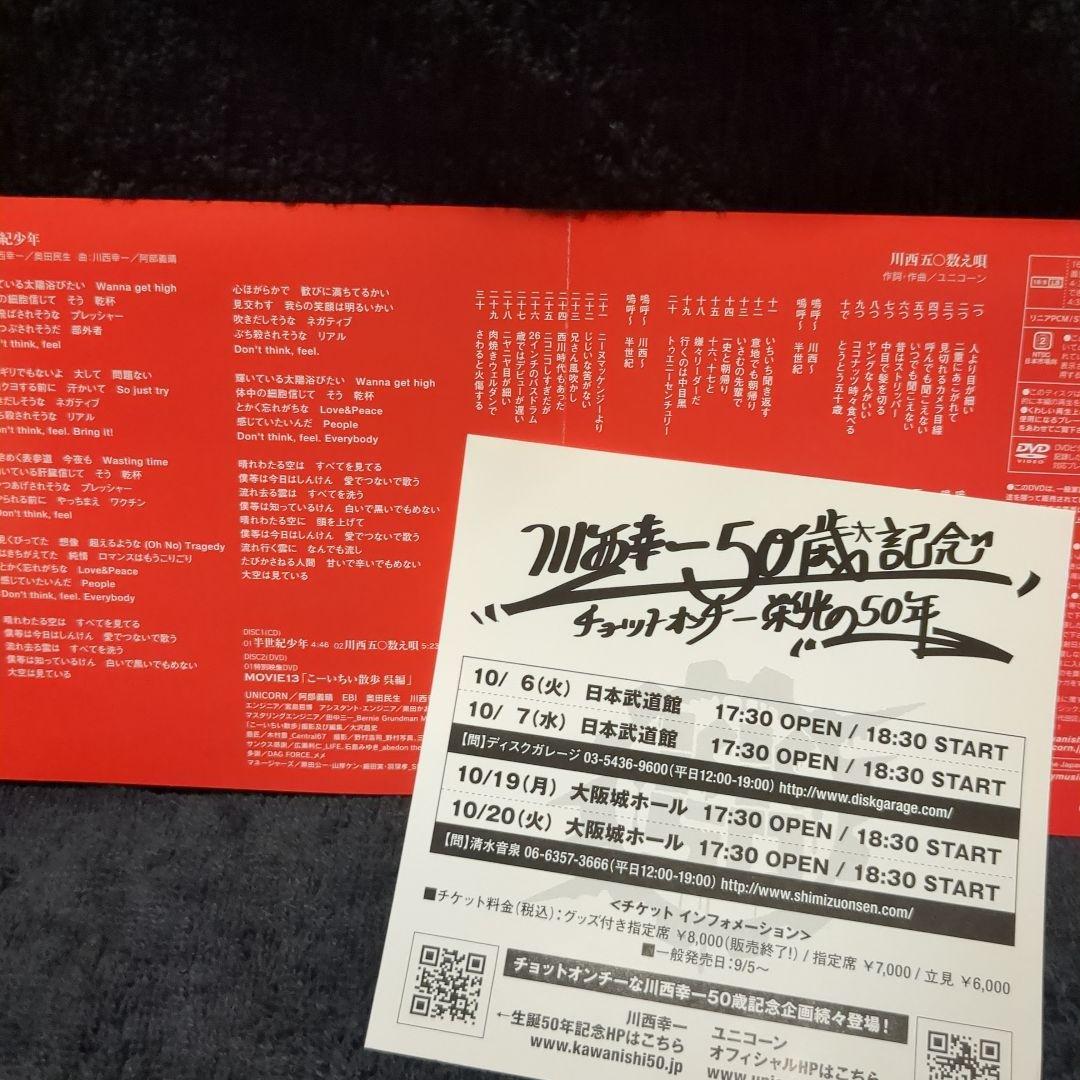 紀少年
西幸一／奥田民生 曲：川西幸一／阿部義晴
ている太陽浴びたい Wanna get high
の細胞信じて そう 乾杯
飛ばされそうな プレッシャー
つぶされそうだ 部外者
n't think, feel
ギリでもないよ 大して 問題ない
クヨする前に 汗かいて So just try
きだしそうな ネガティブ
ち殺されそうな リアル
n't think, feel. Bring it!
きめく表参道 今夜も Wasting time
いている肝臓信じて そう 乾杯
つあげされそうな プレッシャー
やられる前に やっちまえ ワクチン
Don't think, feel
くびってた 想像 超えるような (Oh No) Tragedy
はきちがえてた 純情 ロマンスはもうこりごり
とかく忘れがちな Love&Peace
感じていたいんだ People
Don't think, feel. Everybody
晴れわたる空は すべてを見てる
僕等は今日はしんけん 愛でつないで歌う
流れ去る雲は すべてを洗う
僕等は知っているけん 白いで黒いでもめない
大空は見ている
心ほがらかで 歓びに満ちてるかい
見交わす 我らの笑顔は明るいかい
吹きだしそうな ネガティブ
ぶち殺されそうな リアル
Don't think, feel.
輝いている太陽浴びたい Wanna get high
体中の細胞信じて そう 乾杯
とかく忘れがちな Love&Peace
感じていたいんだ People
Don't think, feel. Everybody
晴れわたる空は すべてを見てる
僕等は今日はしんけん 愛でつないで歌う
流れ去る雲は すべてを洗う
僕等は知っているけん 白いで黒いでもめない
晴れわたる空に 顔を上げて
僕等は今日はしんけん 愛でつないで歌う
流れ行く雲に なんでも流し
たびかさねる人間 甘いで辛いでもめない
大空は見ている
DISC1(CD)
01 半世紀少年 4:46 02 川西五〇数え唄 5:23
DISC2(DVD)
01特別映像DVD
MOVIE13「こーいちい散歩 呉編」
UNICORN／阿部義晴 EBI 奥田民生 川西
川西五〇数え唄
作詞・作曲／ユニコーン
一つ 人より目が細い
二つ 二重にあこがれて
三つ 見切れるカメラ目線
四つ 呼んでも聞こえない
五つ いつでも聞こえない
六つ 昔はストリッパー
七つ 中目で髪を切る
八つ ヤングな人がいい
九つ ココナッツ時々食べる
十で とうとう五十歳
嗚呼〜 川西〜
嗚呼〜 半世紀
十一 いちいち聞き返す
十二 意地でも朝帰り
十三 いさむの先輩で
十四 一史と朝帰り
十五 十六、十七と
十八 嫌々リーダーだ
十九 行くのは中目黒
二十 トゥエニーセンチュリー
嗚呼〜 川西〜
嗚呼〜 半世紀
二十一 ニーヌマッケンジーより
二十二 じじいな筈がない
二十三 兄さん風吹かし
二十四 西川時代もあった
二十五 ニコニコしすぎだが
二十六 26インチのバスドラム
二十七 歳ではデビューが遅い
二十八 ニヤニヤ目が細い
二十九 肉焼きウェルダンで
三十 さわると火傷する
リニアPCM／ST
2
NTSC
日本市場向
DVD
VIDEO
川西幸一50歳大記念
チョットオンチー栄光の50年
10/ 6(火) 日本武道館 17:30 OPEN / 18:30 START
10/ 7(水) 日本武道館 17:30 OPEN / 18:30 START
【問】ディスクガレージ 03-5436-9600(平日12:00-19:00) http://www.diskgarage.com/
10/19(月) 大阪城ホール 17:30 OPEN / 18:30 START
10/20(火) 大阪城ホール 17:30 OPEN / 18:30 START
【問】清水音泉 06-6357-3666(平日12:00-19:00) http://www.shimizuonsen.com/
<チケット インフォメーション>
■チケット料金(税込)：グッズ付き指定席 ￥8,000(販売終了!) / 指定席 ￥7,000 / 立見 ￥6,000
■一般発売日：9/5〜
チョットオンチーな川西幸一50歳記念企画続々登場！
川西幸一
←生誕50年記念HPはこちら
www.kawanishi50.jp
ユニコーン
オフィシャルHPはこちら